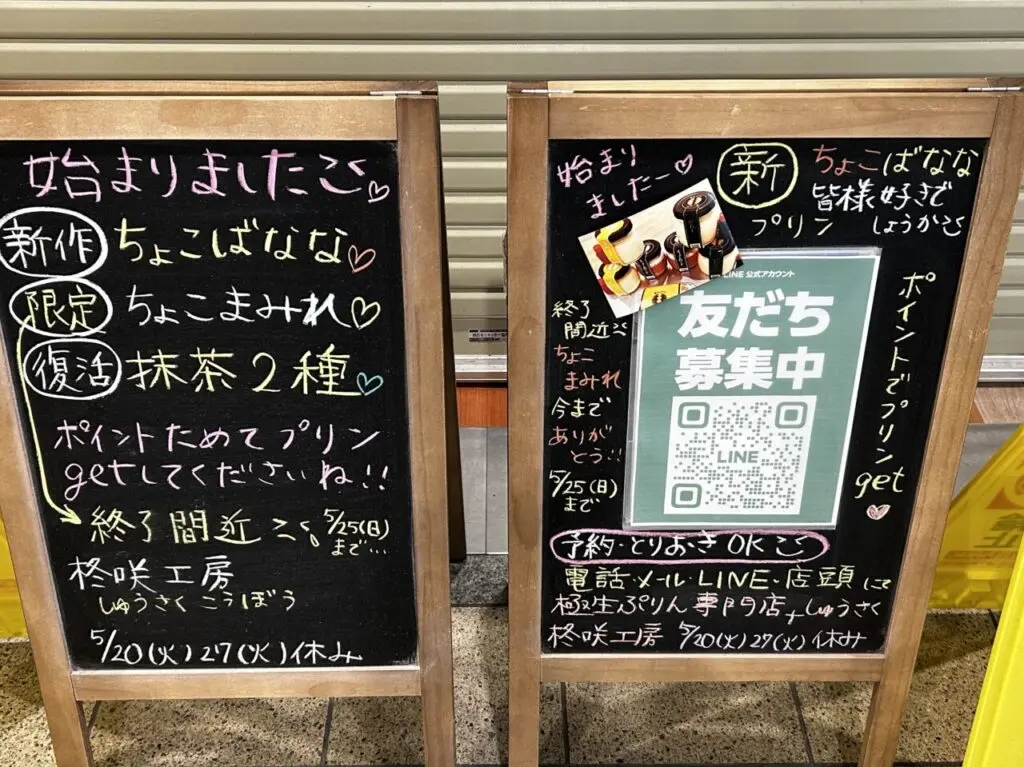 始まりました
新作 ちょこばなな
限定 ちょこまみれ
復活 抹茶2種
ポイントためてプリン
getしてくださいね!!
終了間近 5/25(日)
まで…
柊咲工房
しゅうさくこうぼう
5/20(火)27(火)休み
始まり
ましたー
新 ちょこばなな
プリン
皆様好きで
しょうか
LINE 公式アカウント
友だち
募集中
LINE
終了
間近
ちょこ
まみれ
今まで
ありが
とう!!
5/25(日)
まで
ポイントでプリン
get
予約・とりおきOK
電話・メール LINE・店頭にて
極生ぷりん専門店 しゅうさく
柊咲工房 5/20(火)27(火)休み